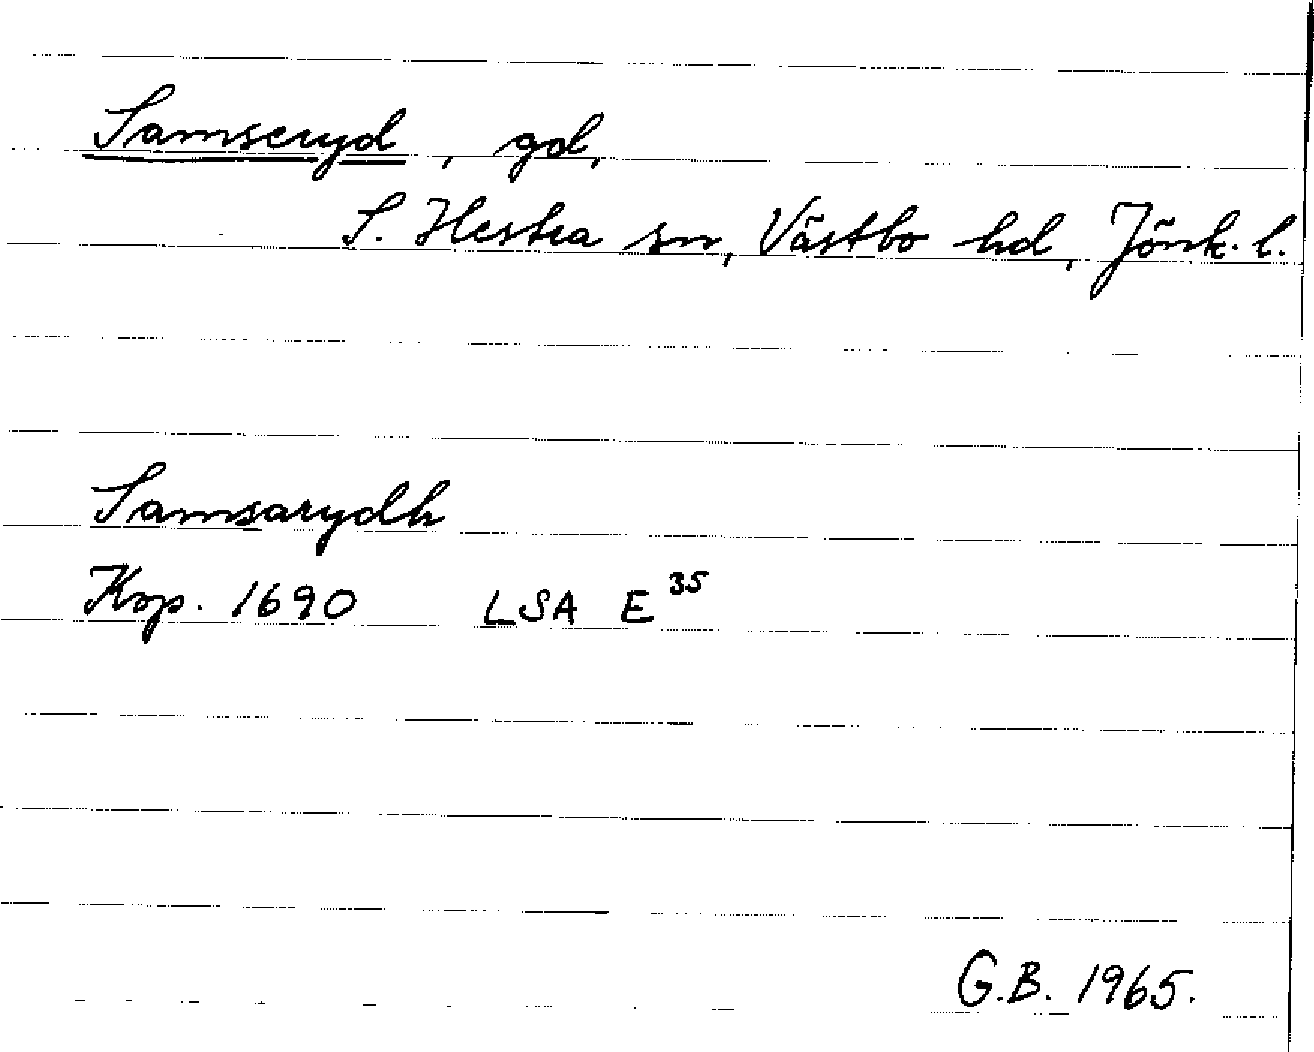 Samseryd, gd,
S. Hestra sn, Västbo hd, Jönk. l.
Samsarydh
Ksp. 1690 LSA E 35
G.B. 1965.